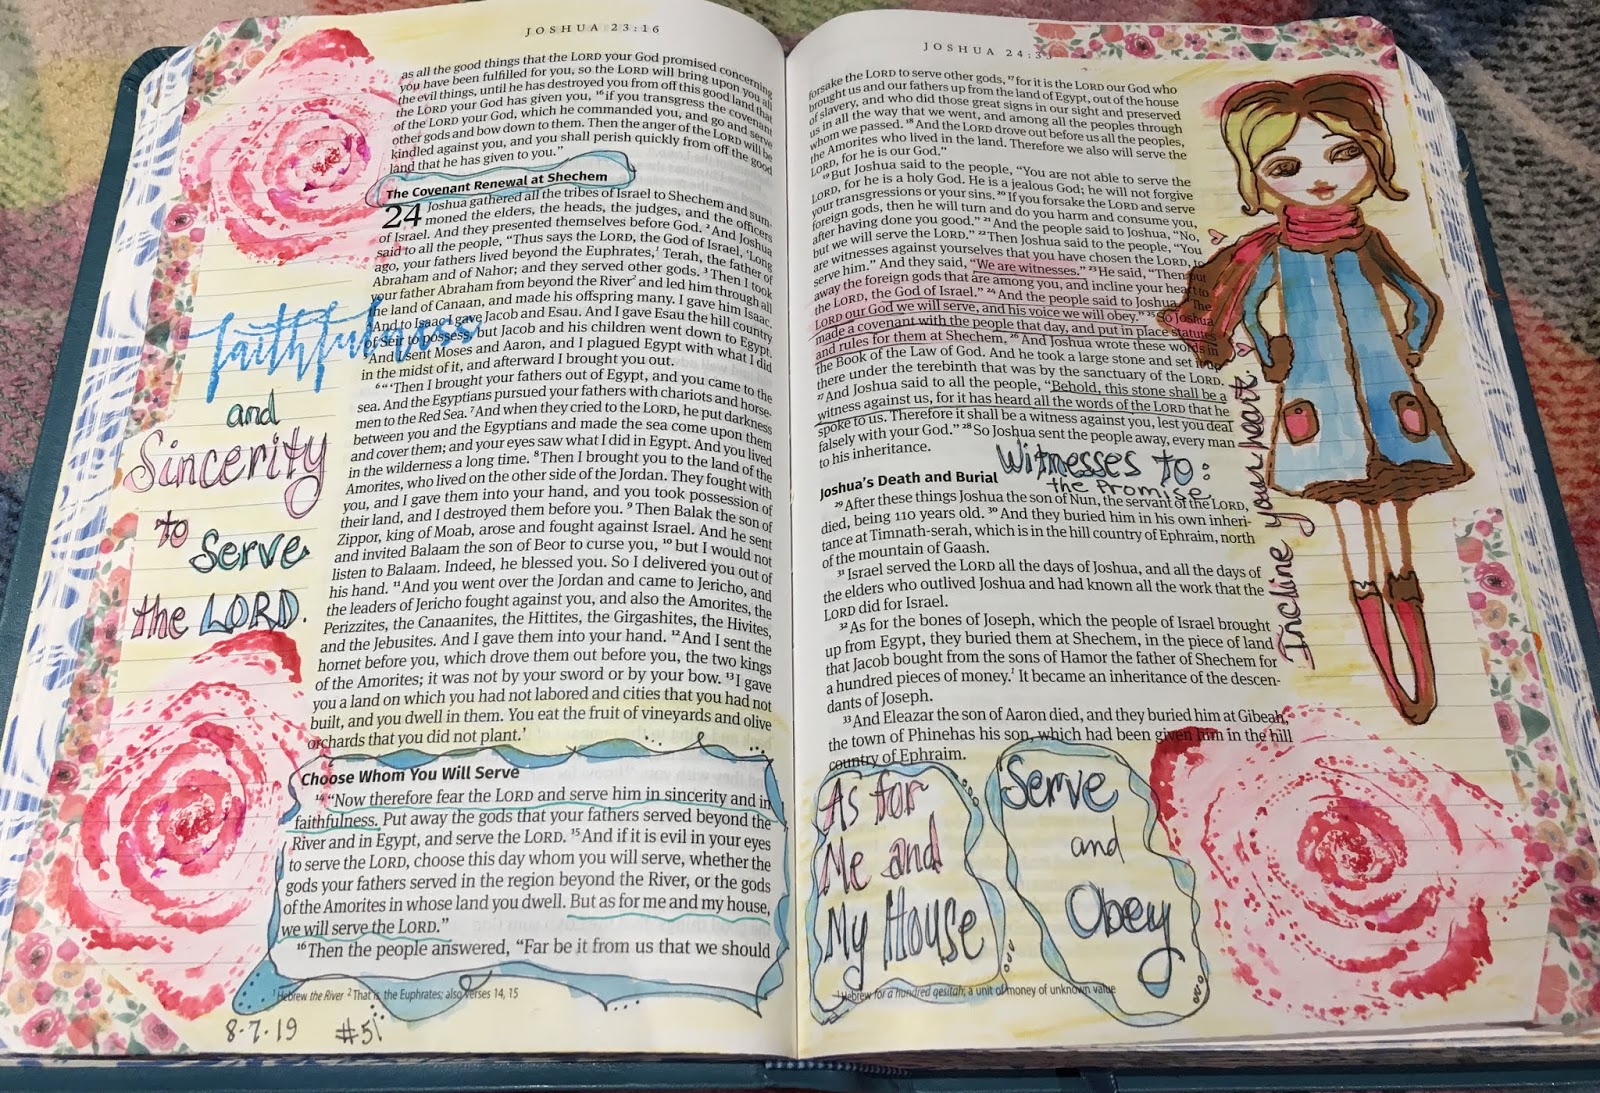 JOSHUA 23:16
as all the good things that the LORD your God promised concerning
you have been fulfilled for you, so the LORD will bring upon you all
the evil things, until he has destroyed you from off this good land that
the LORD your God has given you, 16 if you transgress the covenant
of the LORD your God, which he commanded you, and go and serve
other gods and bow down to them. Then the anger of the LORD will be
kindled against you, and you shall perish quickly from off the good
land that he has given to you.”
The Covenant Renewal at Shechem
24 Joshua gathered all the tribes of Israel to Shechem and sum-
moned the elders, the heads, the judges, and the officers
of Israel. And they presented themselves before God. 2 And Joshua
said to all the people, “Thus says the LORD, the God of Israel, ‘Long
ago, your fathers lived beyond the Euphrates,1 Terah, the father of
Abraham and of Nahor; and they served other gods. 3 Then I took
your father Abraham from beyond the River2 and led him through all
the land of Canaan, and made his offspring many. I gave him Isaac.
And to Isaac I gave Jacob and Esau. And I gave Esau the hill country
of Seir to possess, but Jacob and his children went down to Egypt.
And I sent Moses and Aaron, and I plagued Egypt with what I did
in the midst of it, and afterward I brought you out.
6 “‘Then I brought your fathers out of Egypt, and you came to the
sea. And the Egyptians pursued your fathers with chariots and horse-
men to the Red Sea. 7 And when they cried to the LORD, he put darkness
between you and the Egyptians and made the sea come upon them
and cover them; and your eyes saw what I did in Egypt. And you lived
in the wilderness a long time. 8 Then I brought you to the land of the
Amorites, who lived on the other side of the Jordan. They fought with
you, and I gave them into your hand, and you took possession of
their land, and I destroyed them before you. 9 Then Balak the son of
Zippor, king of Moab, arose and fought against Israel. And he sent
and invited Balaam the son of Beor to curse you, 10 but I would not
listen to Balaam. Indeed, he blessed you. So I delivered you out of
his hand. 11 And you went over the Jordan and came to Jericho, and
the leaders of Jericho fought against you, and also the Amorites, the
Perizzites, the Canaanites, the Hittites, the Girgashites, the Hivites,
and the Jebusites. And I gave them into your hand. 12 And I sent the
hornet before you, which drove them out before you, the two kings
of the Amorites; it was not by your sword or by your bow. 13 I gave
you a land on which you had not labored and cities that you had not
built, and you dwell in them. You eat the fruit of vineyards and olive
orchards that you did not plant.’
Choose Whom You Will Serve
14 “Now therefore fear the LORD and serve him in sincerity and in
faithfulness. Put away the gods that your fathers served beyond the
River and in Egypt, and serve the LORD. 15 And if it is evil in your eyes
to serve the LORD, choose this day whom you will serve, whether the
gods your fathers served in the region beyond the River, or the gods
of the Amorites in whose land you dwell. But as for me and my house,
we will serve the LORD.”
16 Then the people answered, “Far be it from us that we should
1 Hebrew the River 2 That is, the Euphrates; also verses 14, 15
faithfulness
and
Sincerity
to
Serve
the LORD.
8-7-19 #51
JOSHUA 24:33
forsake the LORD to serve other gods, 17 for it is the LORD our God who
brought us and our fathers up from the land of Egypt, out of the house
of slavery, and who did those great signs in our sight and preserved
us in all the way that we went, and among all the peoples through
whom we passed. 18 And the LORD drove out before us all the peoples,
the Amorites who lived in the land. Therefore we also will serve the
LORD, for he is our God.”
19 But Joshua said to the people, “You are not able to serve the
LORD, for he is a holy God. He is a jealous God; he will not forgive
your transgressions or your sins. 20 If you forsake the LORD and serve
foreign gods, then he will turn and do you harm and consume you,
after having done you good.” 21 And the people said to Joshua, “No,
but we will serve the LORD.” 22 Then Joshua said to the people, “You
are witnesses against yourselves that you have chosen the LORD, to
serve him.” And they said, “We are witnesses.” 23 He said, “Then put
away the foreign gods that are among you, and incline your heart to
the LORD, the God of Israel.” 24 And the people said to Joshua, “The
LORD our God we will serve, and his voice we will obey.” 25 So Joshua
made a covenant with the people that day, and put in place statutes
and rules for them at Shechem. 26 And Joshua wrote these words in
the Book of the Law of God. And he took a large stone and set it up
there under the terebinth that was by the sanctuary of the LORD.
27 And Joshua said to all the people, “Behold, this stone shall be a
witness against us, for it has heard all the words of the LORD that he
spoke to us. Therefore it shall be a witness against you, lest you deal
falsely with your God.” 28 So Joshua sent the people away, every man
to his inheritance.
Witnesses to:
the Promise.
Joshua’s Death and Burial
29 After these things Joshua the son of Nun, the servant of the LORD,
died, being 110 years old. 30 And they buried him in his own inheri-
tance at Timnath-serah, which is in the hill country of Ephraim, north
of the mountain of Gaash.
31 Israel served the LORD all the days of Joshua, and all the days of
the elders who outlived Joshua and had known all the work that the
LORD did for Israel.
32 As for the bones of Joseph, which the people of Israel brought
up from Egypt, they buried them at Shechem, in the piece of land
that Jacob bought from the sons of Hamor the father of Shechem for
a hundred pieces of money.1 It became an inheritance of the descen-
dants of Joseph.
33 And Eleazar the son of Aaron died, and they buried him at Gibeah,
the town of Phinehas his son, which had been given him in the hill
country of Ephraim.
Incline your heart.
As for
Me and
My House
Serve
and
Obey
1 Hebrew for a hundred qesitah; a unit of money of unknown value